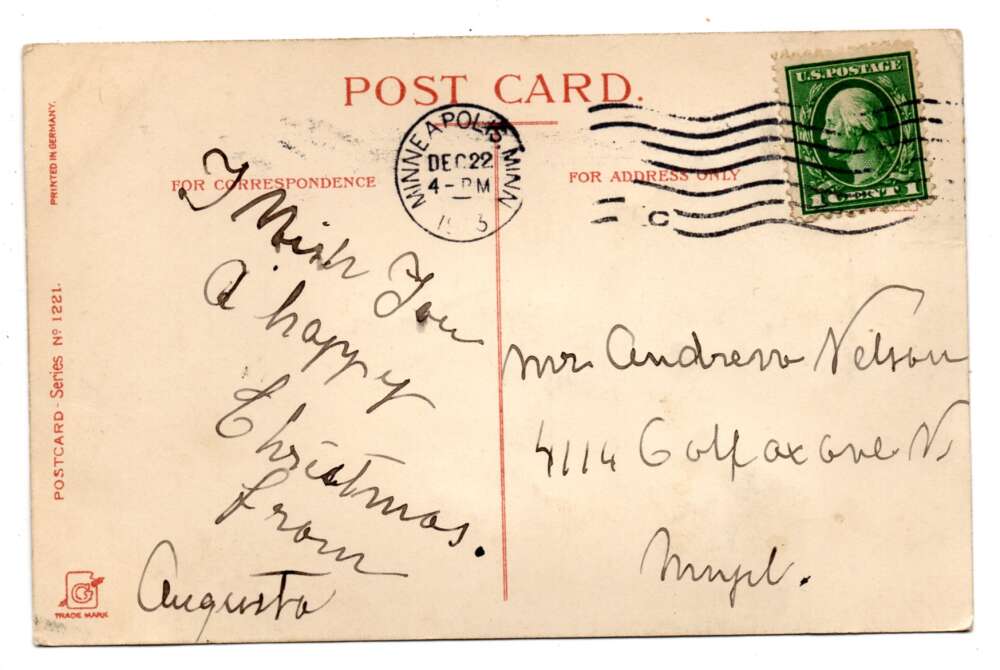 POST CARD.
MINNEAPOLIS, MINN
DEC 22
4 - PM
U.S. POSTAGE
1 CENT 1
C
FOR CORRESPONDENCE
FOR ADDRESS ONLY
PRINTED IN GERMANY.
POSTCARD - Series No 1221.
TRADE MARK
I Wish You
A happy
Christmas.
From
Augusta
Mr Andrew Nelson
4114 Colfax ave N
Mpl.